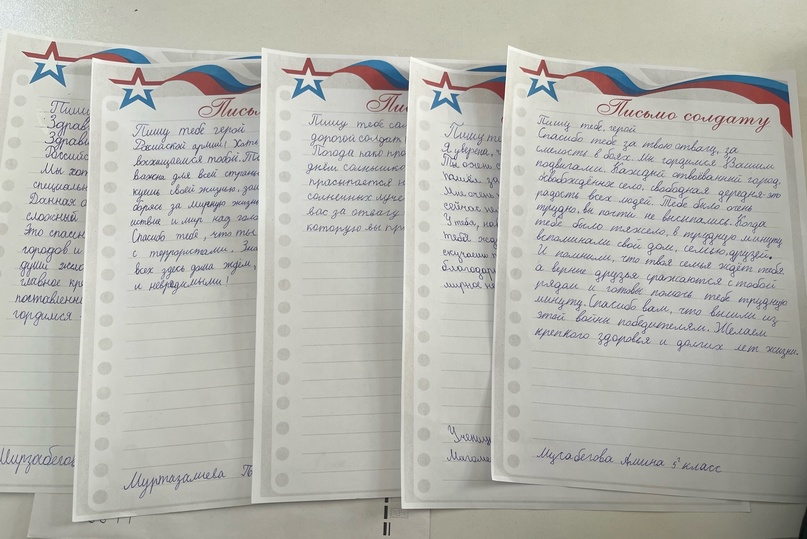 Пишу
Здрав
Здрави
Россий
Мы хот
специаль
Данная о
сложный
Это спасен
городов и
души жив
главное кр
поставленн
гордимся
Мирзабегов
Письм
Пишу тебе герой
Российской армии! Хоти
восхищаемся тобой. То
важна для всей страны
куешь своей жизнью, защ
борясь за мирную жизнь
ствие и мир над голо
Спасибо тебе, что ты
с террористами. Зна
всех здесь дома ждём,
и невредимыми!
Муртазалиева
Пис
Пишу тебе са
дорогой солдат
Погода как про
днём солнышко
просыпается н
солнечных луче
вас за отвагу
которую вы пр
Пишу те
Я уверена, ч
Ты очень с
Мы очень
сейчас на
У тебя, на
тебя жд
скучаешь п
благодар
мирное не
Учениц
Магоме
Письмо солдату
Пишу тебе, герой
Спасибо тебе за твою отвагу, за
смелость в боях. Мы гордимся Вашими
подвигами. Каждый отвоёванный город,
освобождённое село, свободная деревня-это
радость всех людей. Тебе было очень
трудно, вы почти не высыпались. Когда
тебе было тяжело, в трудную минуту
вспоминали свой дом, семью, друзей.
И помнили, что твоя семья ждёт тебя
а верные друзья сражаются с тобой
рядом и готовы помочь тебе трудную
минуту. Спасибо вам, что вышли из
этой войны победителям. Желаем
крепкого здоровья и долгих лет жизни.
Мусабегова Амина 5 класс